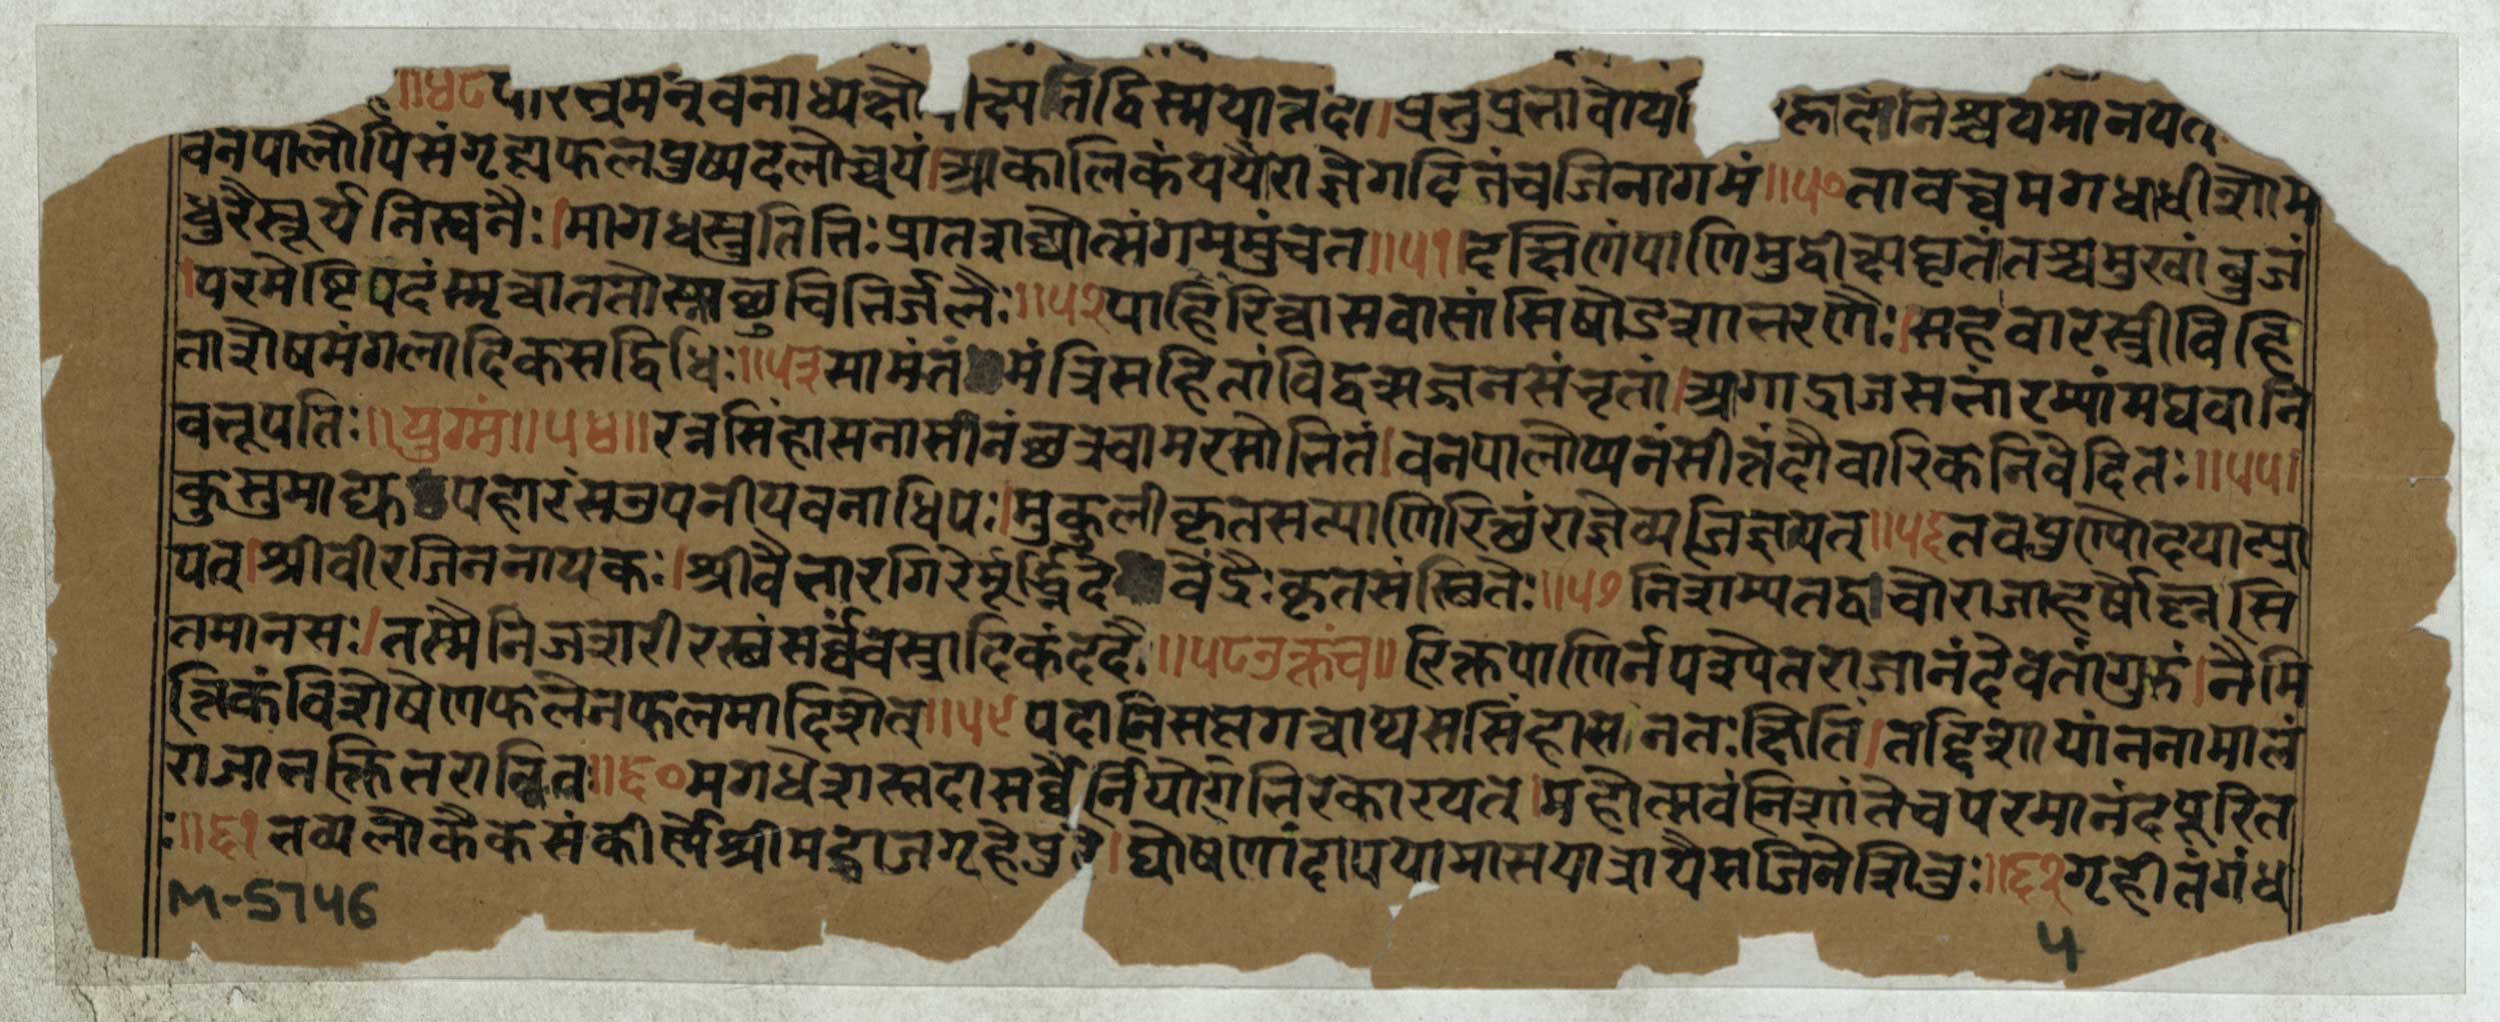 ॥४८ परिभ्रमन्वनाध्यक्षो क्ष्येति द्विस्मयात्तदा। प्रभुप्रभावोर्या ह्लादो निश्चयमानयत्
वनपालोपि संगृह्य फलपुष्पदलोच्चयं। आकालिकं ययौ राज्ञे गदितुं च जिनागमं॥५० तावच्च मगधाधीशो म
धुरैस्तूर्यनिस्वनैः। मागधस्तुतिभिः प्रातशय्योत्संगममुंचत॥५१। दक्षिणं पाणिमुद्वीक्ष्य घृतं तश्च मुखांबुजं
। परमेष्टिपदं स्मृत्वा ततो स्नाच्छुचिभिर्जलैः॥५२ पाहिरित्वा स वासांसि षोडशाभरणैः। सह वारस्त्रीविहि
ताशेषमंगलादिकसद्विधिः॥५३ सामंतं मंत्रिसहितां विद्वत्सज्जनसंभृतां। अगाद्राजसभां रम्यां मघवानि
वभूपतिः॥ युग्मं॥५४॥ रत्नसिंहासनासीनं छत्रचामरसोभितं। वनपालोप्यनंसीत्तं दौवारिकनिवेदितः॥५५।
कुसुमाद्यु पहारं स उपनीय वनाधिपः। मुकुलीकृतसत्पाणिरित्थं राज्ञे व्यजिज्ञपत्॥५६ तव पुण्योदयात्प्रा
पत्। श्रीवीरजिननायकः। श्रीवैभारगिरेर्मूर्द्ध्नि दे वेंद्रैः कृतसंस्थितेः॥५७ निशम्य तद्वचो राजा हर्षोद्भिन्नसि
तमानसः। तस्मै निजशरीरस्थं सर्व्वं वस्त्रादिकं ददौ॥५८ उक्तं च॥ रिक्तपाणिर्न पश्येत राजानं देवतां गुरुं। नैमि
त्तिकं विशेषेण फलेन फलमादिशेत्॥५९ पदानि सप्त गत्वाथ स सिंहासनतः क्षितिं। तद्दिशायां ननामालं
राजा भक्तिभरान्वितः॥६० मगधेशस्तदा सर्व्वैर्नियोगिभिरकारयत्। महोत्सवं निशांते च परमानंदपूरित
ः॥६१ भव्यलोकैकसंकीर्णे श्रीमद्राजगृहे पुरे। घोषणां दापयामास यात्रायै स जिनेशितुः॥६२ गृहीतगंध
M-5746
५